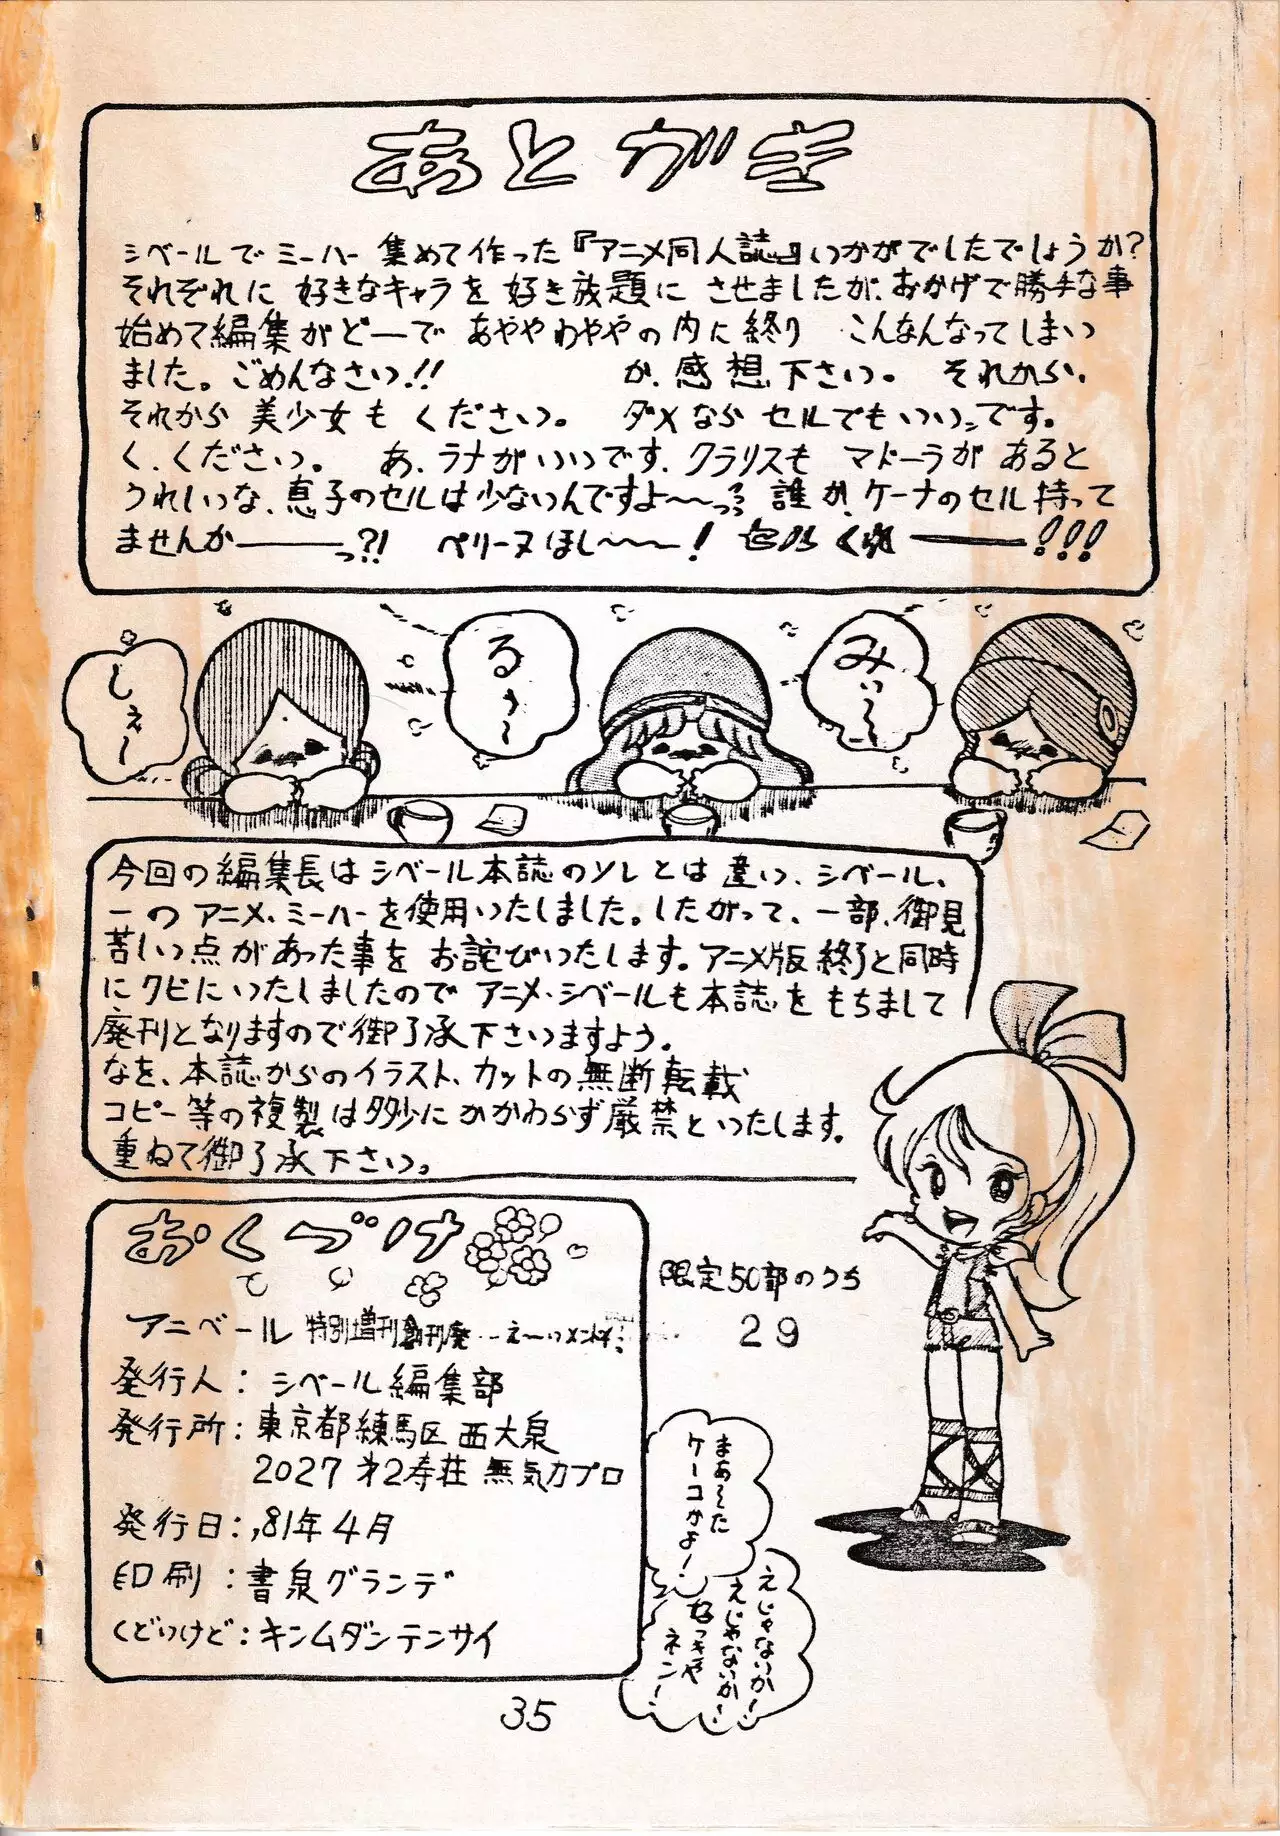 あとがき
シベールでミーハー集めて作った『アニメ同人誌』いかがでしたでしょうか?
それぞれに 好きなキャラを好き放題に させましたが、おかげで勝手な事
始めて編集がどーで あややわややの内に終り こんなんなってしまい
ました。ごめんなさい!! が、感想下さい。 それから、
それから 美少女も ください。 ダメなら セルでもいいです。
く、ください。 あ、ラナがいいです、クラリスも マドーラが あると
うれしいな、息子のセルは少ないんですよ〜〜っ 誰か、ケーナのセル持って
ませんか———っ?! ペリーヌほし〜〜〜! ———!!!
しぇー
るぅ〜
みぃ〜〜
今回の編集長はシベール本誌のソレとは違い、シベール、
一のアニメ、ミーハーを使用いたしました。したがって、一部、御見
苦しい点があった事をお詫びいたします。アニメ版終了と同時
にクビにいたしましたのでアニメ・シベールも本誌をもちまして
廃刊となりますので御了承下さいますよう。
なを、本誌からのイラスト、カットの無断転載
コピー等の複製は多少にかかわらず厳禁といたします。
重ねて御了承下さい。
おくづけ
アニベール 特別増刊創刊廃…え〜い
発行人:シベール編集部
発行所:東京都練馬区西大泉
2027 才2寿荘 無気力プロ
発行日:,81年4月
印刷:書泉グランデ
くどいけど:キンムダンテンサイ
限定50部のうち
29
まあ〜た
ケーコかよ!
えじゃないか!
えじゃないか!
なつきや
ネン!
35